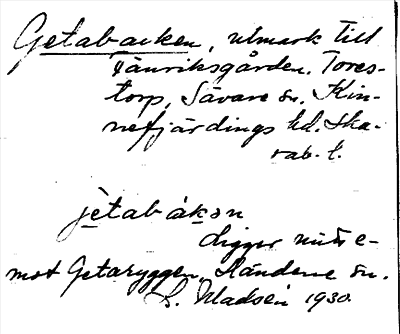 Getabacken, utmark till
Jänriksgården, Tores-
torp, Sävare sn. Kin-
nefjärdings hd. Ska-
rab. l.
jètabákən
ligger mitt e-
mot Getaryggen, Händene sn.
S. Madsén 1930.